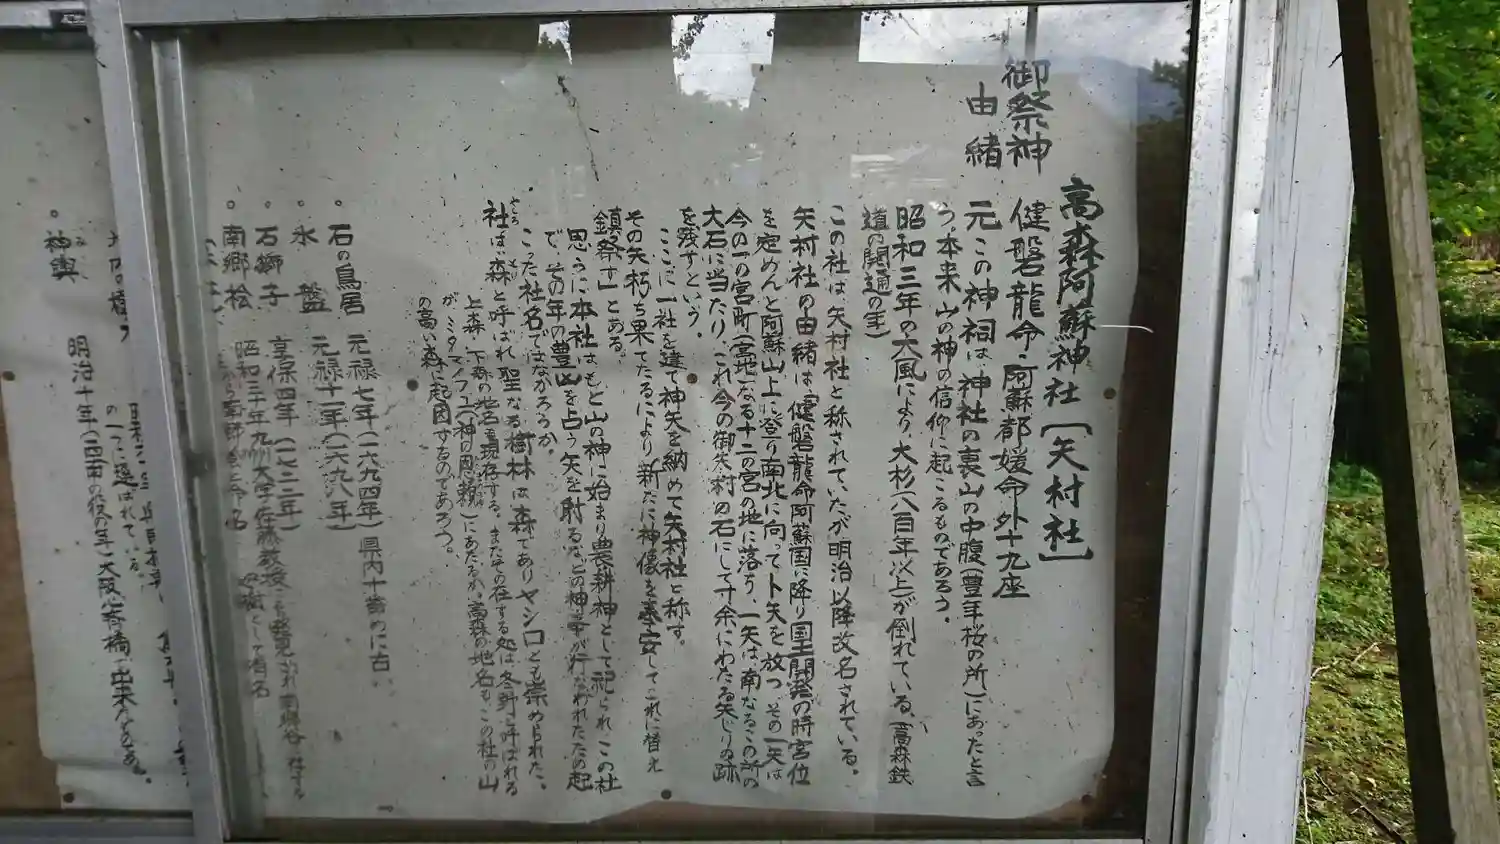 高森阿蘇神社[矢村社]
御祭神
健磐龍命・阿蘇都媛命外十九座
由緒
元この神祠は、神社の裏山の中腹(豊年桜の所)にあったと言
う、本来山の神の信仰に起こるものであろう。
昭和三年の大風により、大杉(八百年以上)が倒れている、(高森鉄
道の開通の年)
この社は、矢村社と称されていたが明治以降改名されている。
矢村社の由緒は「健磐龍命阿蘇国に降り国土開発の時宮位
を定めんと阿蘇山上に登り南北に向って卜矢を放つ、その一矢は
今の一の宮町(宮地)なる十二の宮の地に落ち、一矢は南なるこの所の
大石に当たり、これ今の御矢村の石にして千余にわたる矢じりの跡
を残すという。
ここに一社を建て神矢を納めて矢村社と称す。
その矢朽ち果てたるにより新たに神像を奉安してこれに替え
鎮祭す」とある。
思うに本社はもと山の神に始まり農耕神として祀られ、この社
で、その年の豊凶を占う矢を射るなどの神事が行なわれたための起
こった社名ではなかろうか。
社は森と呼ばれ聖なる樹林は森でありヤシロとも崇められた。
上森、下森の地名も現存する。またその在する処は冬野と呼ばれる
が、ミタマノフユ(神の恩頼)にあたるか。高森の地名もこの社の山
の高い森に起因するのであろう。
◦石の鳥居 元禄七年(一六九四年)県内十番めに古い
◦水盤 元禄十一年(一六九八年)
◦石獅子 享保四年
◦南郷桧 昭和三十年九州大学佐藤教授
◦神輿 明治十年(西南の役の年)大阪